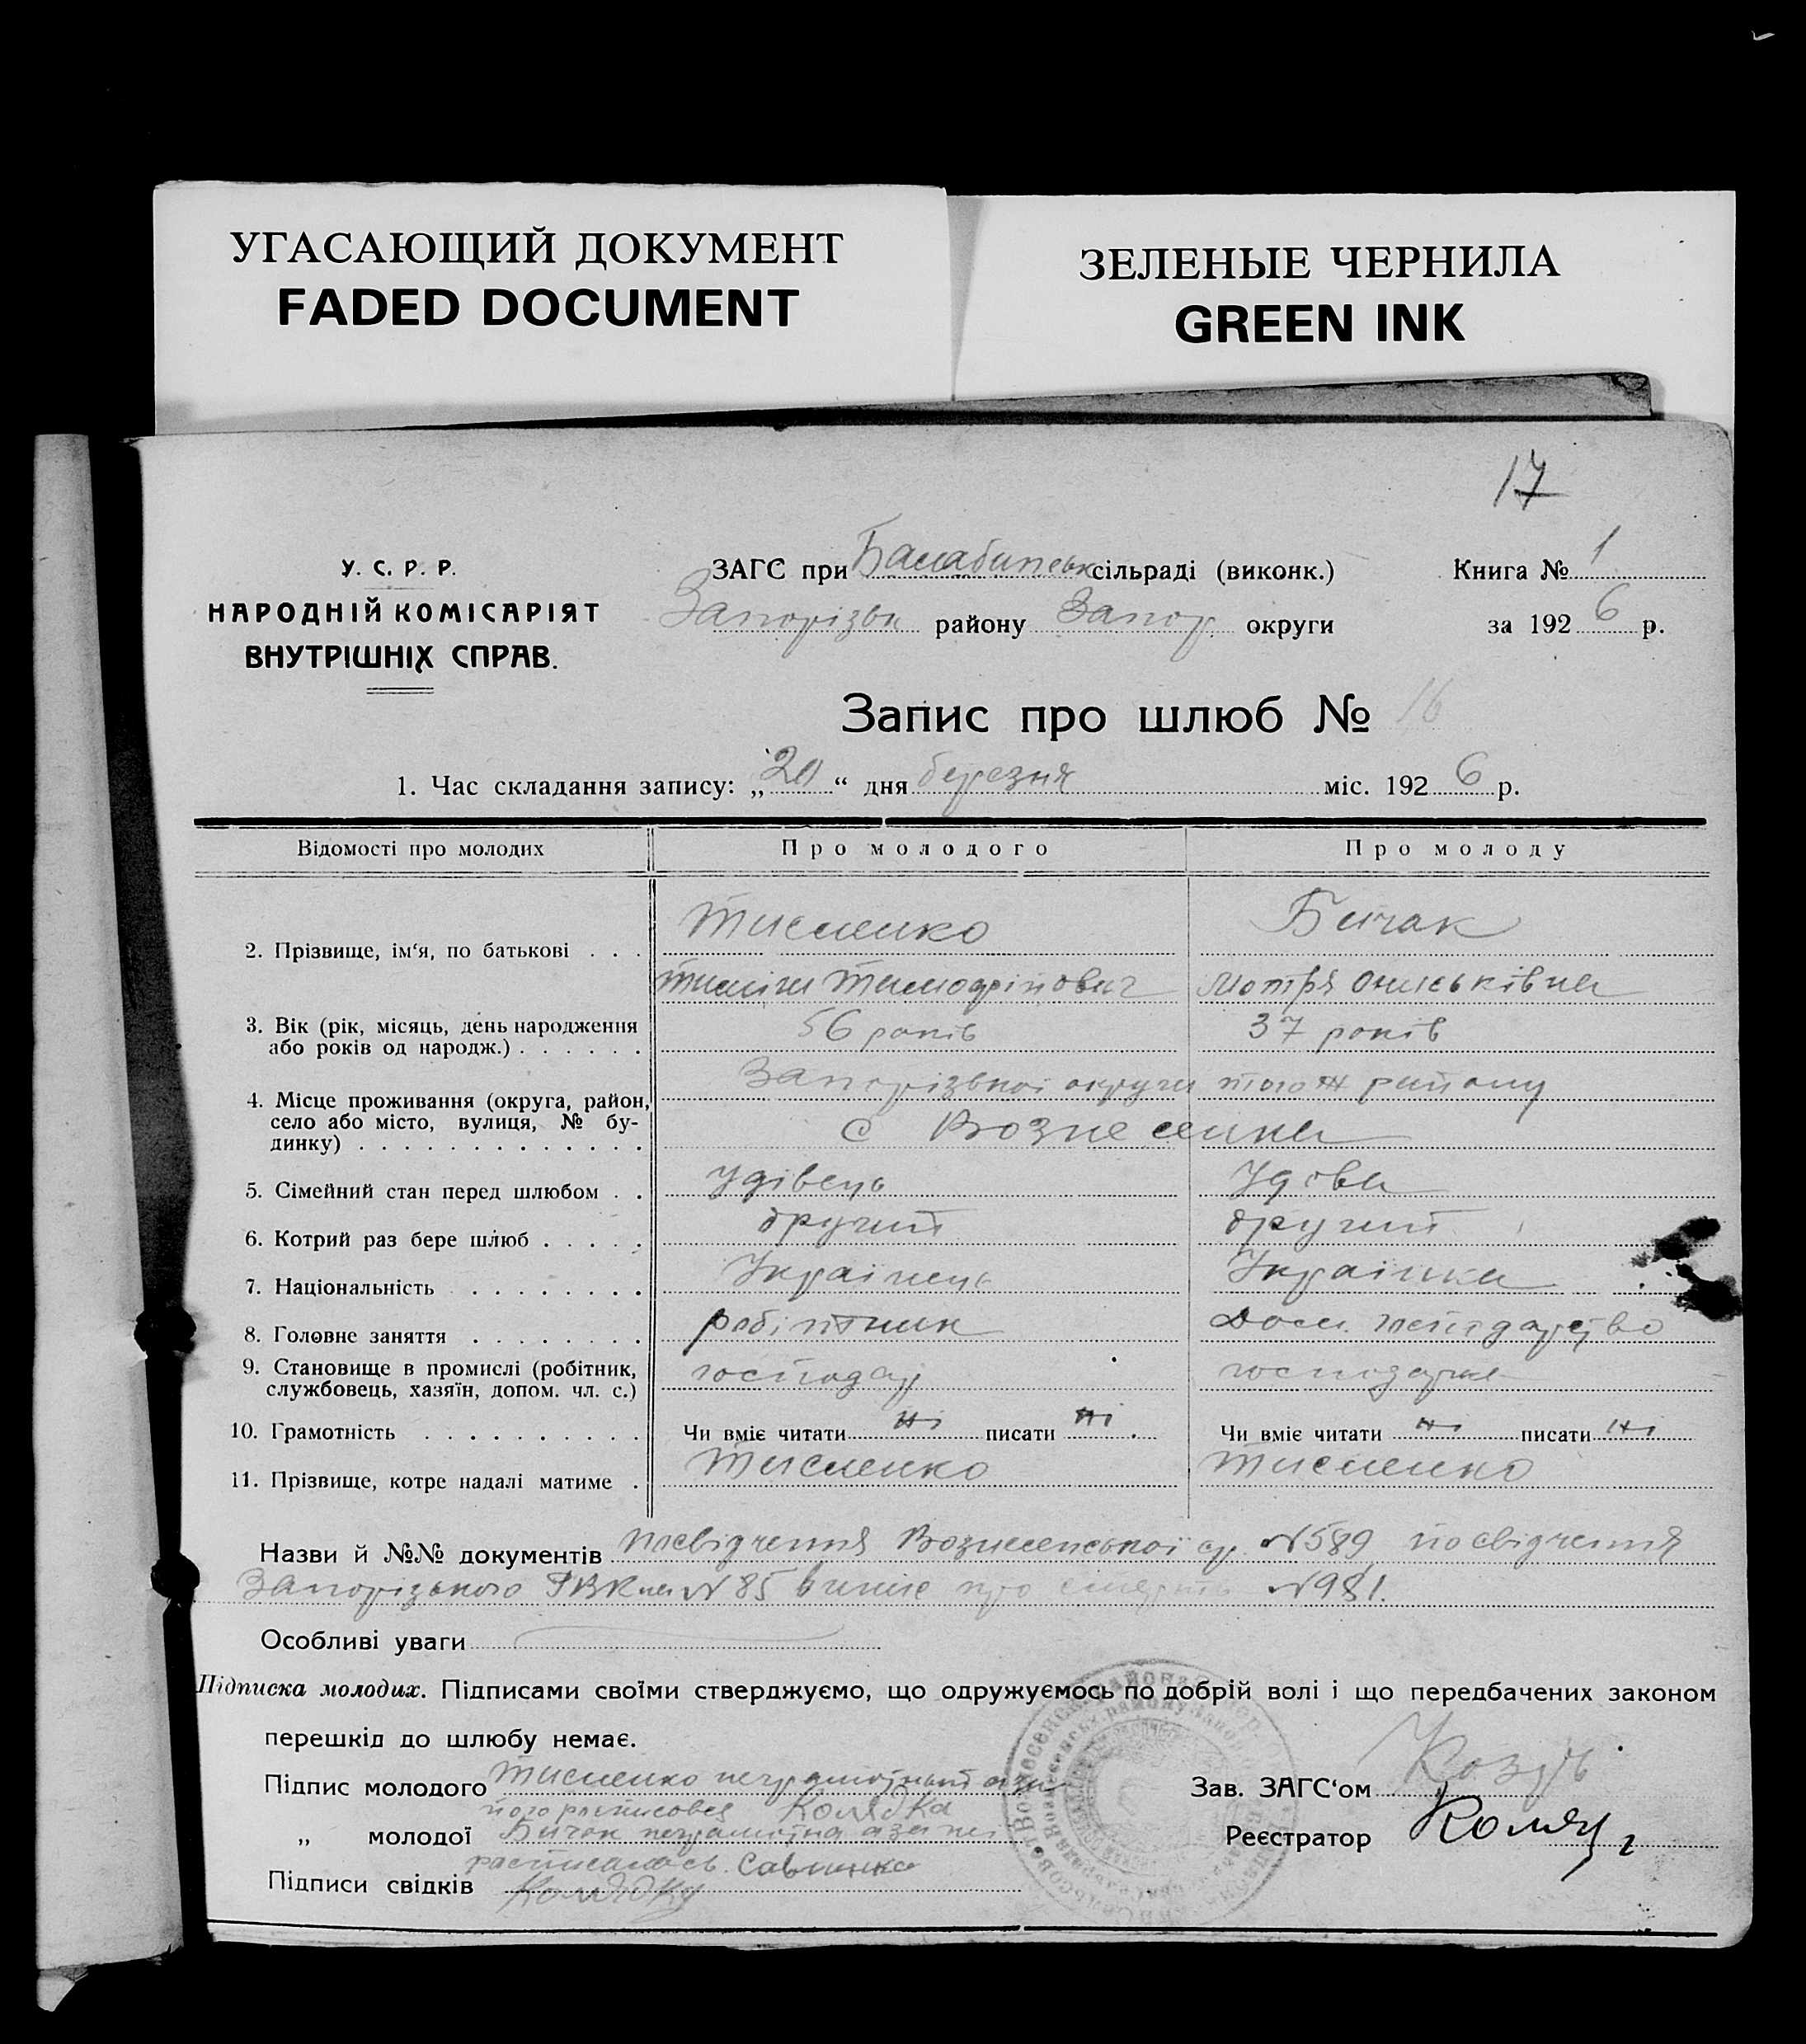 УГАСАЮЩИЙ ДОКУМЕНТ
FADED DOCUMENT
ЗЕЛЕНЫЕ ЧЕРНИЛА
GREEN INK
17
У. С. Р. Р.
НАРОДНІЙ КОМІСАРІЯТ
ВНУТРІШНІХ СПРАВ.
ЗАГС при Балабинськ сільраді (виконк.) Книга № 1
Запорізьк району Запор. округи за 1926 р.
Запис про шлюб № 16
1. Час складання запису: „20“ дня березня міс. 1926 р.
Відомості про молодих Про молодого Про молоду
2. Прізвище, ім‘я, по батькові . . . Тисменко Бичак
Тимофійович Мотря Ониськівна
3. Вік (рік, місяць, день народження
або років од народж.) . . . . . . 56 років 37 років
4. Місце проживання (округа, район, Запорізької округи того ж району
село або місто, вулиця, № бу-
динку) . . . . . . . . . . . . . с Вознесенка
5. Сімейний стан перед шлюбом . . Удівець Удова
6. Котрий раз бере шлюб . . . . . другий другий
7. Національність . . . . . . . . Українець Українка
8. Головне заняття . . . . . . . . робітник Дом. господарство
9. Становище в промислі (робітник, господар господарка
службовець, хазяїн, допом. чл. с.)
10. Грамотність . . . . . . . . . . Чи вміє читати ні писати ні Чи вміє читати ні писати ні
11. Прізвище, котре надалі матиме . Тисменко Тисменко
Назви й №№ документів посвідчення Вознесенської с/р. №589 посвідчення
Запорізького РВК №85 про смерть №981.
Особливі уваги
Підписка молодих. Підписами своїми стверджуємо, що одружуємось по добрій волі і що передбачених законом
перешкід до шлюбу немає.
Підпис молодого Тисменко неграмотний а за
його росписовся Колядка
Зав. ЗАГС‘ом
„ молодої Бичак неграмотна а за неї
росписалась Савченко
Реєстратор
Підписи свідків